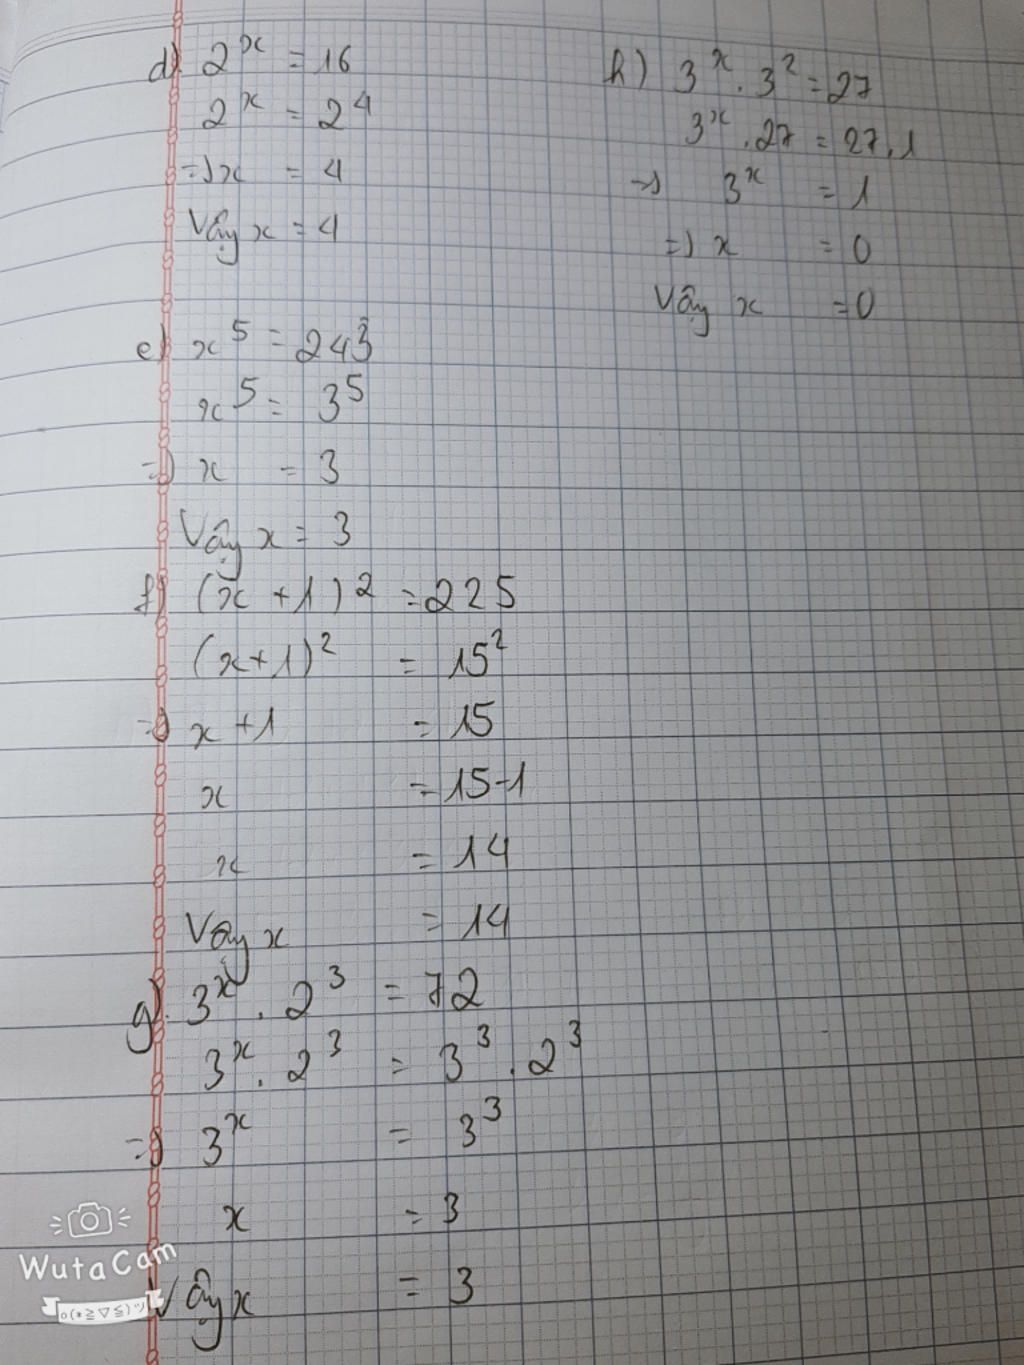 d) 2^x = 16
2^x = 2^4
=> x = 4
Vậy x = 4
e) x^5 = 243
x^5 = 3^5
=> x = 3
Vậy x = 3
f) (x + 1)^2 = 225
(x+1)^2 = 15^2
=> x + 1 = 15
x = 15-1
x = 14
Vậy x = 14
g) 3^x . 2^3 = 72
3^x . 2^3 = 3^3 . 2^3
=> 3^x = 3^3
x = 3
Vậy x = 3
h) 3^x . 3^2 = 27
3^x . 27 = 27.1
=> 3^x = 1
=> x = 0
Vậy x = 0
WutaCam
o(*≧▽≦)ツ